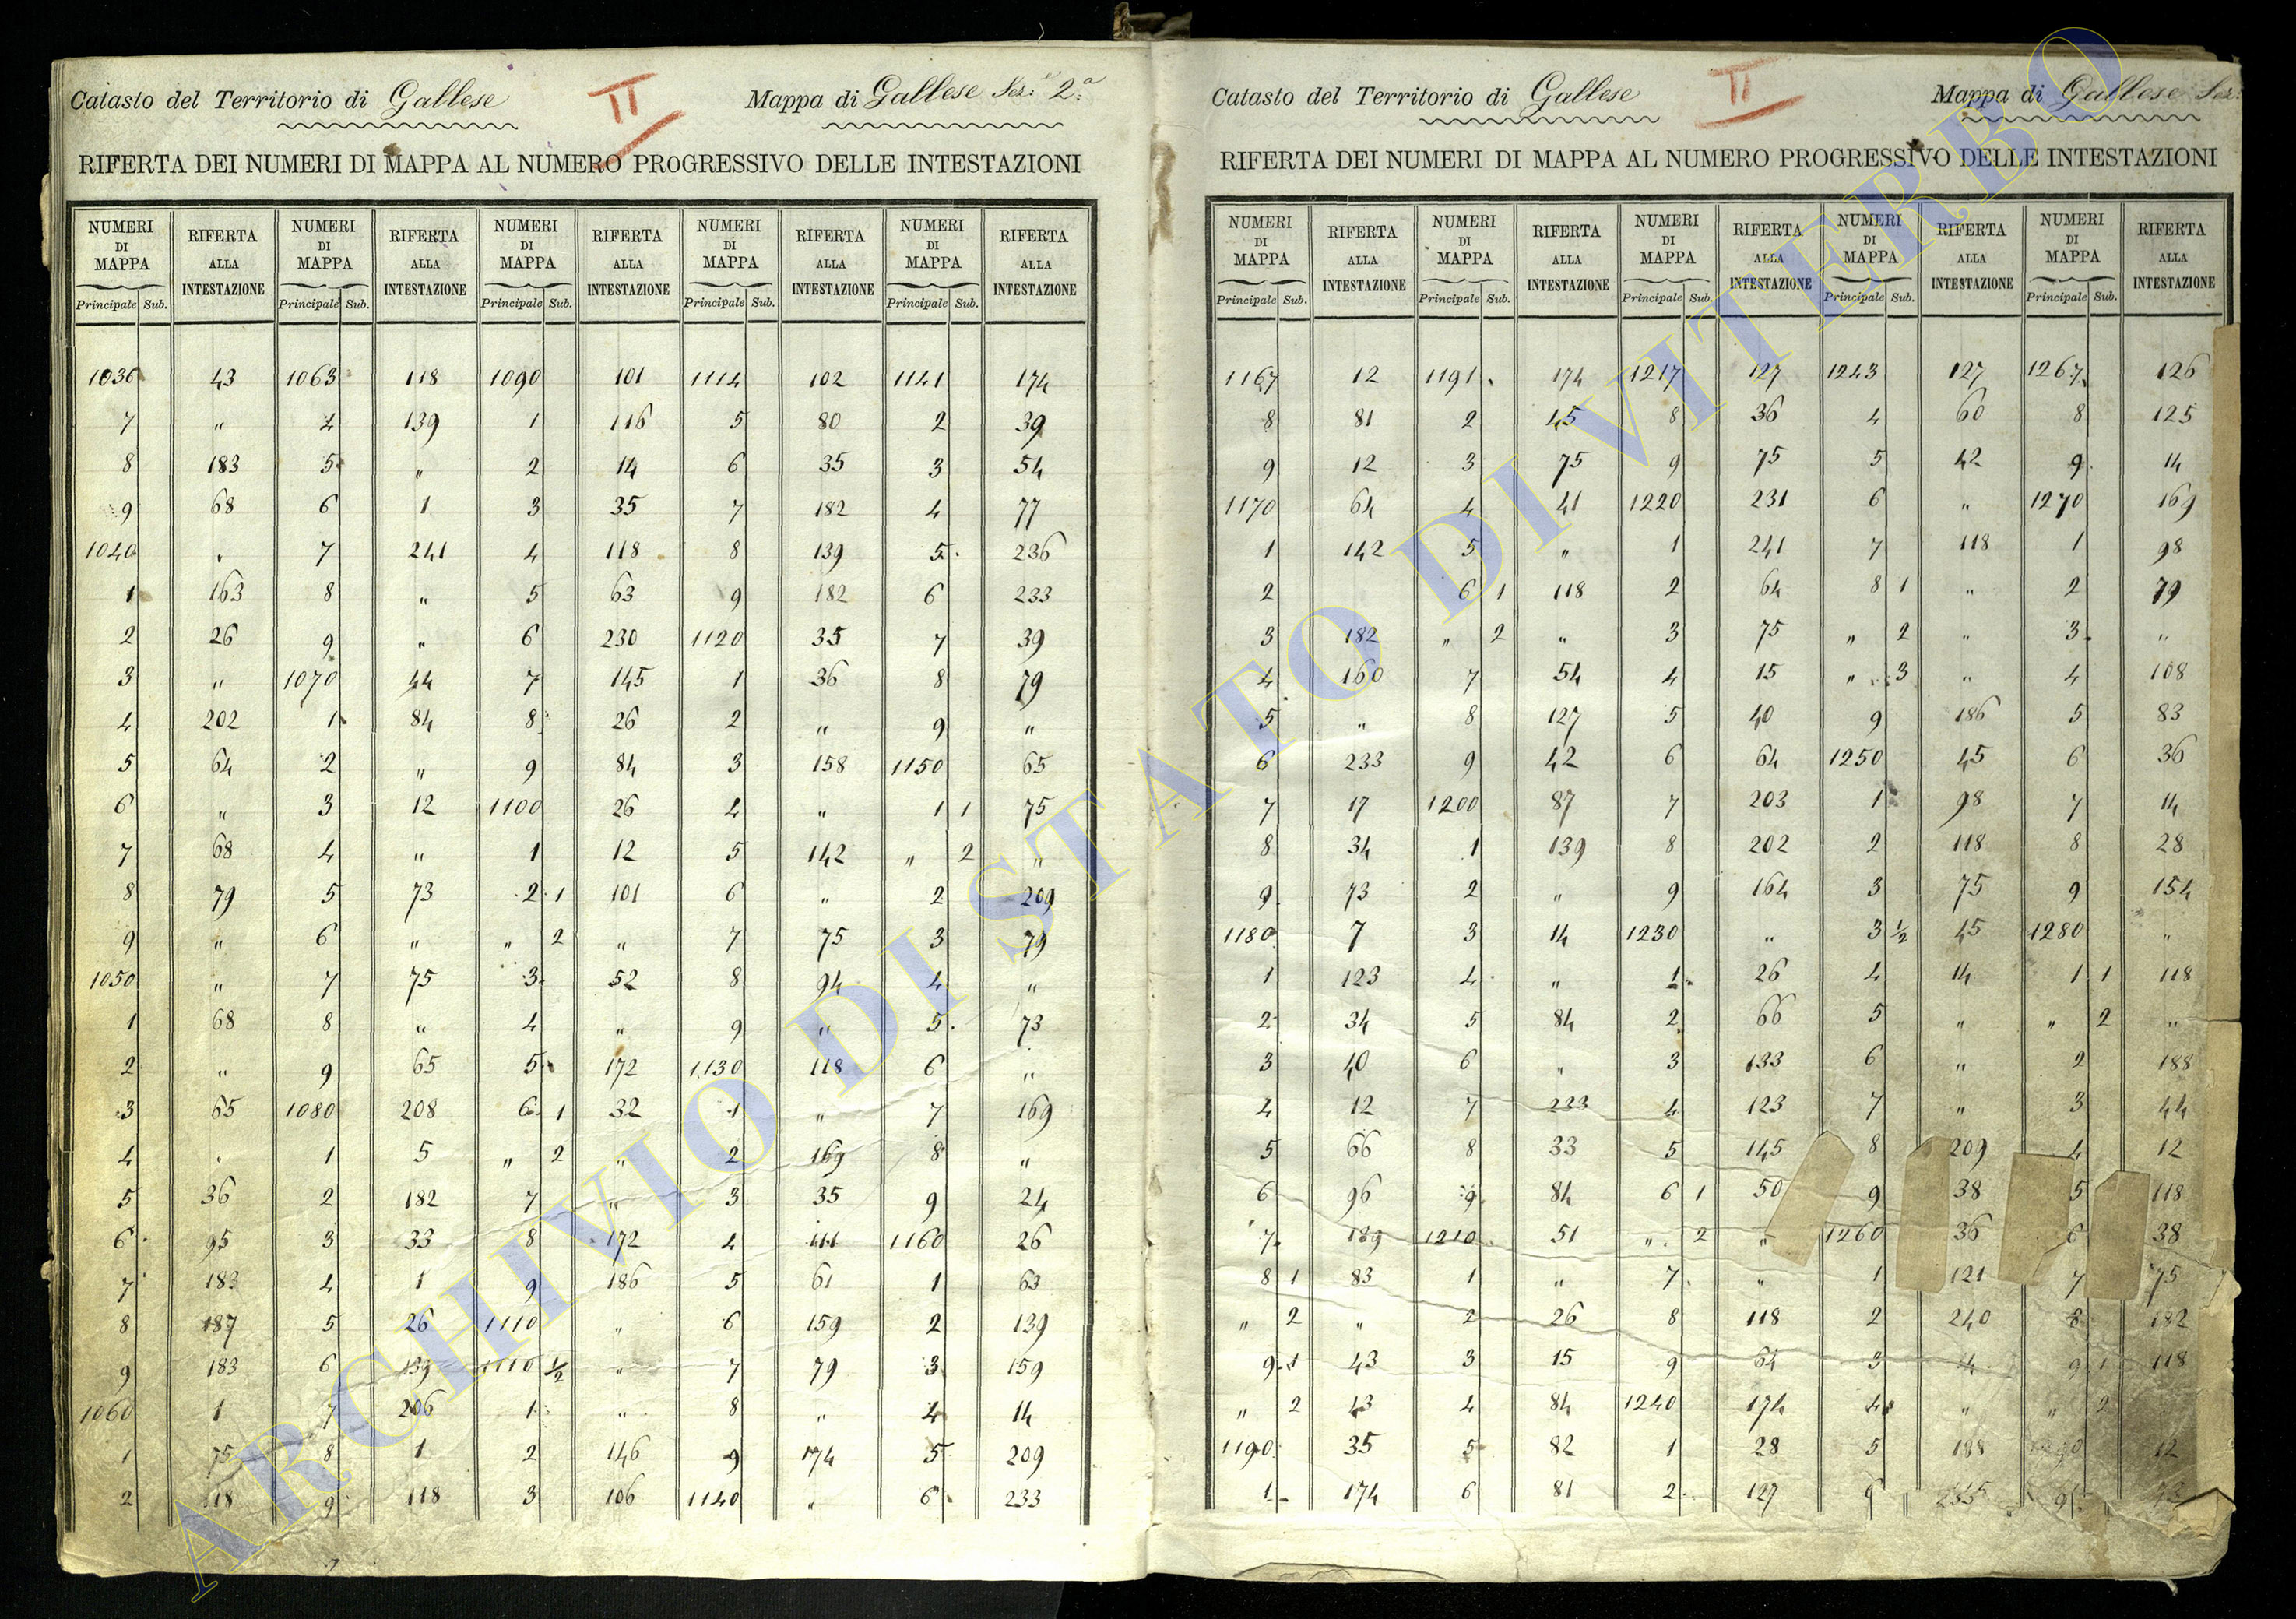 Catasto del Territorio di Gallese II Mappa di Gallese Sez. 2.a
RIFERTA DEI NUMERI DI MAPPA AL NUMERO PROGRESSIVO DELLE INTESTAZIONI
NUMERI DI MAPPA RIFERTA ALLA INTESTAZIONE NUMERI DI MAPPA RIFERTA ALLA INTESTAZIONE NUMERI DI MAPPA RIFERTA ALLA INTESTAZIONE NUMERI DI MAPPA RIFERTA ALLA INTESTAZIONE NUMERI DI MAPPA RIFERTA ALLA INTESTAZIONE
Principale Sub. Principale Sub. Principale Sub. Principale Sub. Principale Sub.
1036 43 1063 118 1090 101 1114 102 1141 174
7 " 4 139 1 116 5 80 2 39
8 183 5 " 2 14 6 35 3 54
9 68 6 1 3 35 7 182 4 77
1040 " 7 241 4 118 8 139 5 236
1 163 8 " 5 63 9 182 6 233
2 26 9 " 6 230 1120 35 7 39
3 " 1070 44 7 145 1 36 8 79
4 202 1 84 8 26 2 " 9 "
5 64 2 " 9 84 3 158 1150 65
6 " 3 12 1100 26 4 " 1 1 75
7 68 4 " 1 12 5 142 " 2 "
8 79 5 73 2 1 101 6 " 2 209
9 " 6 " " 2 " 7 75 3 79
1050 " 7 75 3 52 8 94 4 "
1 68 8 " 4 " 9 " 5 73
2 " 9 65 5 172 1130 118 6 "
3 65 1080 208 6 1 32 1 " 7 169
4 " 1 5 " 2 " 2 169 8 "
5 36 2 182 7 " 3 35 9 24
6 95 3 33 8 172 4 111 1160 26
7 183 4 1 9 186 5 61 1 63
8 187 5 26 1110 " 6 159 2 139
9 183 6 139 1110 1/2 " 7 79 3 159
1060 1 7 206 1 " 8 " 4 14
1 75 8 1 2 146 9 174 5 209
2 118 9 118 3 106 1140 " 6 233
Catasto del Territorio di Gallese II Mappa di Gallese Sez.
RIFERTA DEI NUMERI DI MAPPA AL NUMERO PROGRESSIVO DELLE INTESTAZIONI
NUMERI DI MAPPA RIFERTA ALLA INTESTAZIONE NUMERI DI MAPPA RIFERTA ALLA INTESTAZIONE NUMERI DI MAPPA RIFERTA ALLA INTESTAZIONE NUMERI DI MAPPA RIFERTA ALLA INTESTAZIONE NUMERI DI MAPPA RIFERTA ALLA INTESTAZIONE
Principale Sub. Principale Sub. Principale Sub. Principale Sub. Principale Sub.
1167 12 1191 174 1217 127 1243 127 1267 126
8 81 2 45 8 36 4 60 8 125
9 12 3 75 9 75 5 42 9 14
1170 64 4 41 1220 231 6 " 1270 169
1 142 5 " 1 241 7 118 1 98
2 6 1 118 2 64 8 1 " 2 79
3 182 " 2 " 3 75 " 2 " 3 "
4 160 7 54 4 15 " 3 " 4 108
5 " 8 127 5 40 9 186 5 83
6 233 9 42 6 64 1250 45 6 36
7 17 1200 87 7 203 1 98 7 14
8 34 1 139 8 202 2 118 8 28
9 73 2 " 9 164 3 75 9 154
1180 7 3 14 1230 " 3 1/2 45 1280 "
1 123 4 " 1 26 4 14 1 1 118
2 34 5 84 2 66 5 " " 2 "
3 40 6 " 3 133 6 " 2 188
4 12 7 233 4 123 7 " 3 44
5 66 8 33 5 145 8 209 4 12
6 96 9 84 6 1 50 9 38 5 118
7 189 1210 51 " 2 " 1260 36 6 38
8 1 83 1 " 7 " 1 121 7 75
" 2 " 2 26 8 118 2 240 8 182
9 1 43 3 15 9 64 3 4 9 1 118
" 2 43 4 84 1240 174 4 " " 2
1190 35 5 82 1 28 5 188 12
1 174 6 81 2 127 6
ARCHIVIO DI STATO DI VITERBO